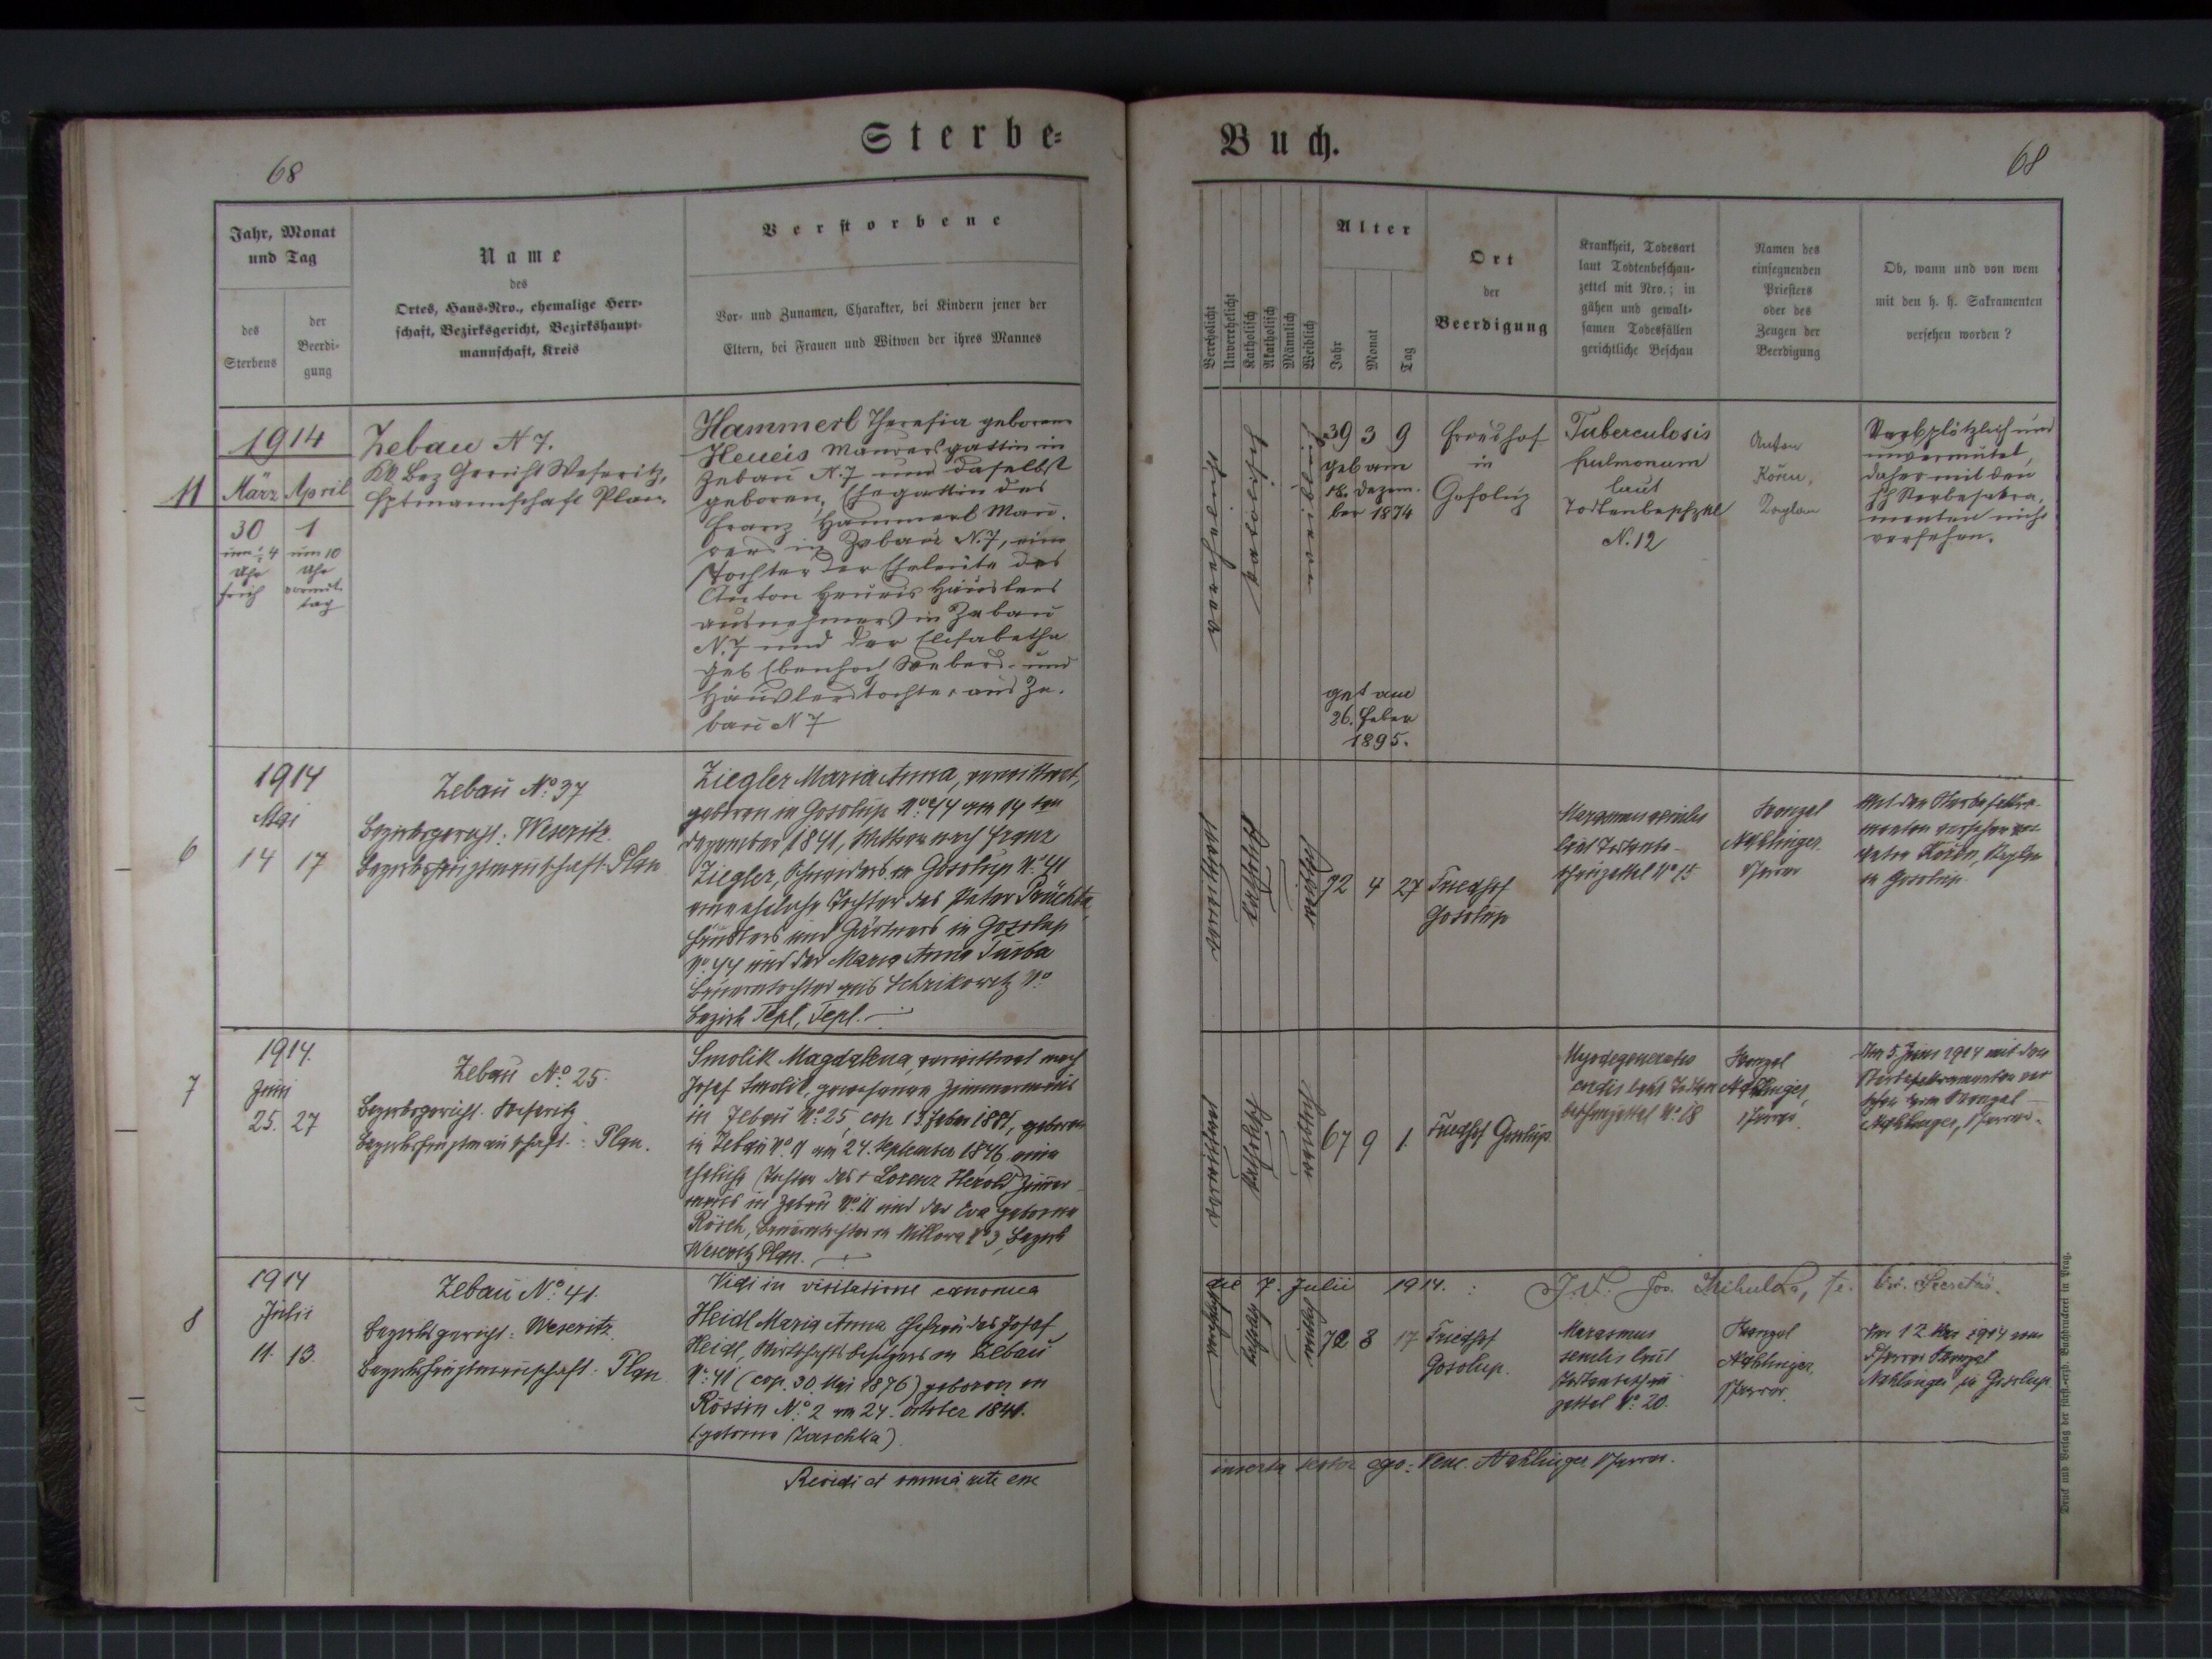 Sterbe-
68
Jahr, Monat
und Tag
des
Sterbens
der
Beerdi-
gung
Name
des
Ortes, Haus-Nro., ehemalige Herr-
schaft, Bezirksgericht, Bezirkshaupt-
mannschaft, Kreis
Verstorbene
Vor- und Zunamen, Charakter, bei Kindern jener der
Eltern, bei Frauen und Witwen der ihres Mannes
1914
11 März April
30 1
um 4 um 10
Uhr Uhr
früh vormit-
tag
Zebau N 7.
KK Bez Gericht Weseritz,
Hptmannschaft Plan.
Hammerl Theresia geborene
Heueis Maurersgattin in
Zebau N. 7 und daselbst
geboren, Ehegattin des
Franz Hammerl Mau-
rers in Zebau N. 7, eine
Tochter der Eheleute des
Anton Heueis Häuslers
ausnehmers in Zebau
N. 7 und der Elisabetha
geb Webers- und
Häuslerstochter aus Ze-
bau N 7
1914
Mai
6 14 17
Zebau No. 37
Bezirksgericht: Weseritz
Bezirkshauptmannschaft: Plan
Ziegler Maria Anna, verwittwet,
geboren in Gosolup No. 44 am 14ten
Dezember 1841, Wittwe nach Franz
Ziegler, Schneiders in Gosolup No. 41
eine eheliche Tochter des Peter
Häuslers und Gärtners in Gosolup
No. 44 und der Maria Anna Turba
Bauerntochter aus Schrikowitz No.
Bezirk Tepl, Tepl.
1914.
7 Juni
25. 27
Zebau No. 25.
Bezirksgericht. Weseritz
Bezirkshauptmannschaft: Plan.
Smolik Magdalena, verwittwet nach
Josef Smolik, gewesenen Zimmermanns
in Zebau No. 25, cop. 13. Feber 1881, geboren
in Zebau No. 9 am 24. September 1846 eine
eheliche Tochter des † Lorenz Herold Zimmer-
manns in Zebau No. 11 und der Eva geborene
Rösch, Bauerntochter in No 3, Bezirk
Weseritz Plan.
1914
8 Juli
11. 13.
Zebau No. 41.
Bezirksgericht: Weseritz
Bezirkshauptmannschaft: Plan
Vidi in visitatione canonica
Heidl Maria Anna Ehefrau des Josef
Heidl, Wirtschaftsbesitzers in Zebau
No. 41 (cop. 30. Mai 1876) geboren in
Rössin No. 2 am 24. October 1841.
(geborne Jaschka)
Revidi et omnia rite esse
Buch.
68
Verehelicht
Unverehelicht
Katholisch
Akatholisch
Männlich
Weiblich
Alter
Jahr
Monat
Tag
Ort
der
Beerdigung
Krankheit, Todesart
laut Todtenbeschau-
zettel mit Nro.; in
gähen und gewalt-
samen Todesfällen
gerichtliche Beschau
Namen des
einsegnenden
Priesters
oder des
Zeugen der
Beerdigung
Ob, wann und von wem
mit den h. h. Sakramenten
versehen worden?
verehelicht
katolisch
weiblich
39 3 9
geb am
Dezem-
ber 1874
get am
26. Feber
1895.
Friedhof
in
Gosolup
Tuberculosis
pulmonum
laut
Todtenbeschzttl
N. 12
Anton
Körn,
Kaplan
Starb plötzlich und
unvermutet,
daher mit den
hh Sterbesakra-
menten nicht
versehen.
verwitwet
katholisch
weiblich
72 4 27
Friedhof
Gosolup
Marasmus senilis
laut Todtenbe-
schauzettel No. 15
Wenzel
Nahlinger
Pfarrer
Mit den Sterbesakra-
menten versehen von
Anton Körn, Kaplan
in Gosolup.
verwitwet
katholisch
weiblich
67 9 1.
Friedhof Gosolup.
Myodegeneratio
cordis laut Todten-
beschauzettel No. 18
Wenzel
Nahlinger,
Pfarrer.
Am 5. Juni 1914 mit den
Sterbesakramenten ver-
sehen vom Wenzel
Nahlinger, Pfarrer.
die 7. Julii 1914. :
verehelicht
katholisch
weiblich
72 8 17
Friedhof
Gosolup.
Marasmus
senilis laut
Todtenbeschau-
zettel No. 20.
Wenzel
Nahlinger,
Pfarrer.
Am 12. Mai 1914 vom
Pfarrer Wenzel
Nahlinger in Gosolup
inserta testor ego: Wenc. Nahlinger Pfarrer.
Druck und Verlag der fürst.-erzb. Buchdruckerei in Prag.